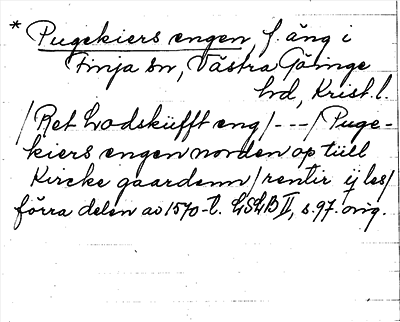 * Pugekiers engen f. äng i
Finja sn, Västra Göinge
hd, Krist. l.
/Ret Lodsküfft eng/---/Puge-
kiers engen norden op tüll
Kircke gaardenn/rentir ij les/
förra delen av 1570-t. LSLB II, s. 97. orig.